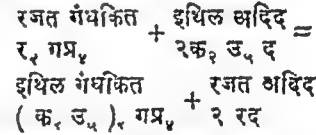 रजत गंधकित + इथिल अदिद =
र₂ गप्र₄ + २क₂ उ₅ द
इथिल गंधकित + रजत अदिद
( क₂ उ₅ )₂ गप्र₄ + २ रद